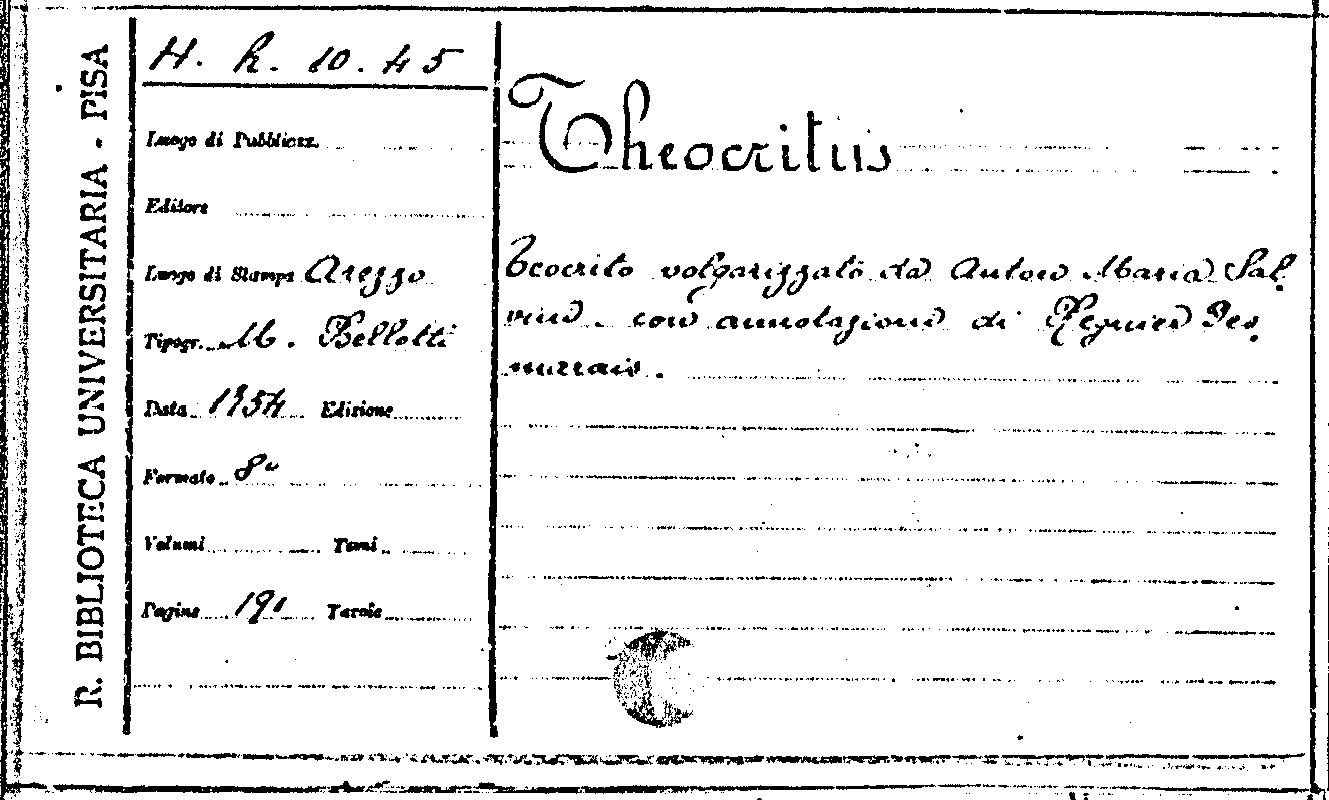 R. BIBLIOTECA UNIVERSITARIA - PISA
H. h. 10. 45
Luogo di Pubblicaz.
Editore
Luogo di Stampa Arezzo
Tipogr. M. Bellotti
Data 1754 Edizione
Formato 8º
Volumi Tomi
Pagine 191 Tavole
Theocritus
Teocrito volgarizzato da Anton Maria Sal-
vini. con annotazioni di Regnier Des
marais.